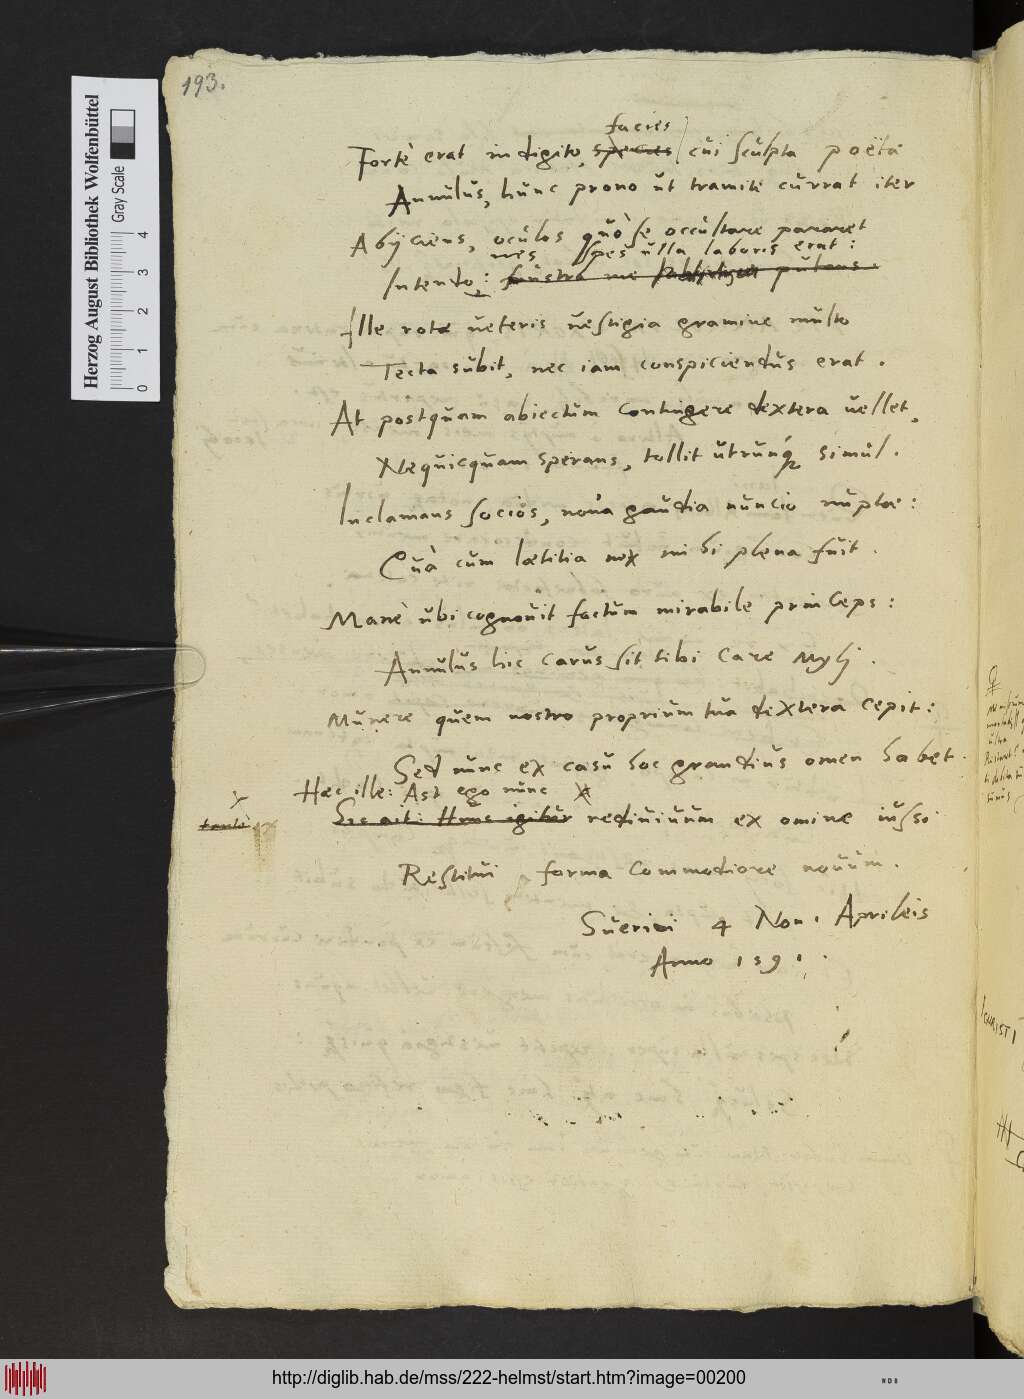 193.
facies
Fortè erat in digito, species cui sculpta poëtæ
Annulus, hunc prono ut tramite currat iter
Abijciens, oculos quò se occultare pararet
nes spes ulla laboris erat:
Intendo: frustra me putans.
Ille rotæ veteris vestigia gramine multo
Tecta subit, nec iam conspiciendus erat.
At postquam abiectum contingere dextera vellet,
Nequicquam sperans, tollit utrunq; simul.
Inclamans socios, nova gaudia nuncio nuptæ:
Quà cum lætitia nox mihi plena fuit.
Manè ubi cognouit factum mirabile princeps:
Annulus hic carus sit tibi Care Mylj.
Munere quem nostro proprium tua dextera cepit:
Sed nunc ex casu hoc grandius omen habet.
Hæc ille: Ast ego nunc
Sic ait: Hunc igitur rediuiuum ex omine iussi
Restitui forma commodiore nouum.
Suerini 4 Non. Aprileis
Anno 1591.
Herzog August Bibliothek Wolfenbüttel
Gray Scale
0 1 2 3 4
http://diglib.hab.de/mss/222-helmst/start.htm?image=00200